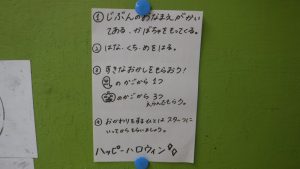 ① じぶんのおなまえがかい
てある、かぼちゃをもってくる。
② はな、くち、めをはる。
③ すきなおかしをもらおう!
のかごから 1つ
のかごから 3つ
④ おかわりをするひとは スタッフに
いってからもらいましょう。
ハッピーハロウィン